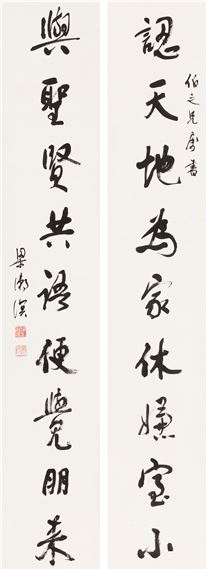 伯之兄屬書
認天地為家休嫌室小
與聖賢共語便覺朋來
梁漱溟